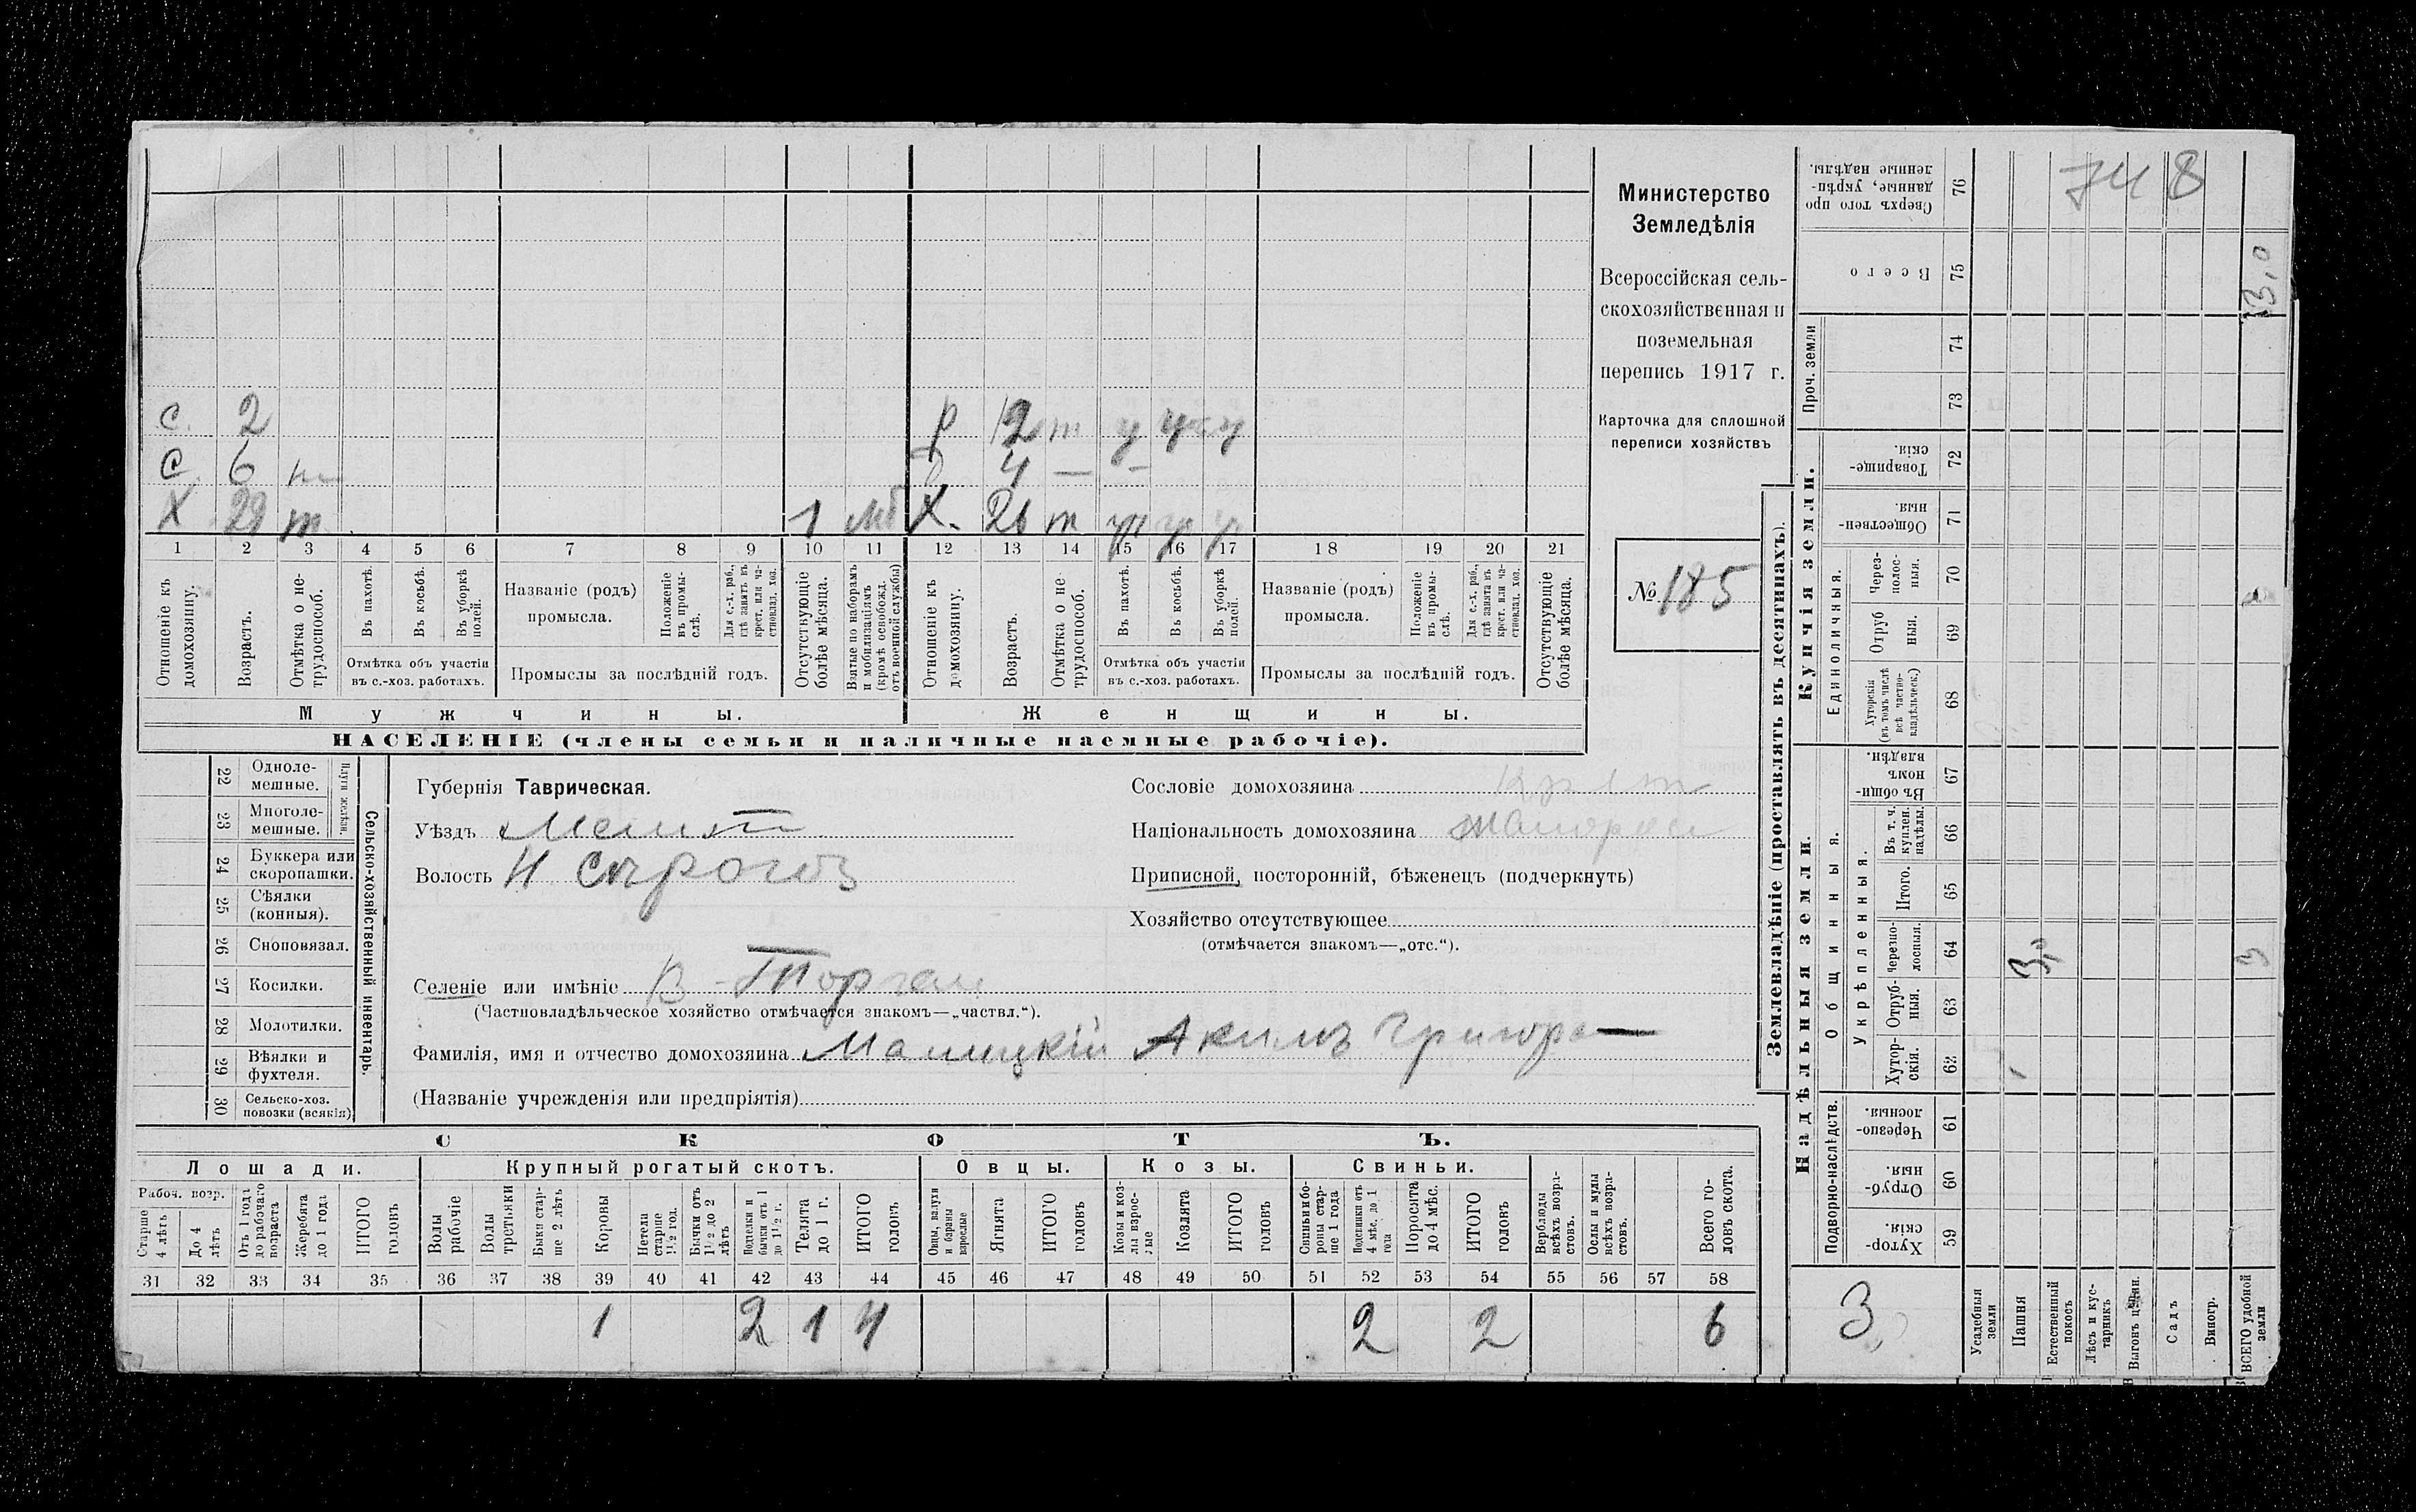 с. 2 р 12 т у у у
с. 6 4 — —
Х 29 т 1 моб Х. 26 т у у у
1 2 3 4 5 6 7 8 9 10 11 12 13 14 15 16 17 18 19 20 21
Отношеніе къ домохозяину.
Возрастъ.
Отмѣтка о нетрудоспособ.
Въ пахотѣ.
Въ косьбѣ.
Въ уборкѣ полей.
Отмѣтка объ участіи въ с.-хоз. работахъ.
Названіе (родъ) промысла.
Положеніе въ промыслѣ.
Для с.-х. раб., гдѣ занятъ въ крест. или частновлад. хоз.
Промыслы за послѣдній годъ.
Отсутствующіе болѣе мѣсяца.
Взятые по наборамъ и мобилизаціямъ (кромѣ освобожд. отъ военной службы)
Отношеніе къ домохозяину.
Возрастъ.
Отмѣтка о нетрудоспособ.
Въ пахотѣ.
Въ косьбѣ.
Въ уборкѣ полей.
Отмѣтка объ участіи въ с.-хоз. работахъ.
Названіе (родъ) промысла.
Положеніе въ промыслѣ.
Для с.-х. раб., гдѣ занята въ крест. или частновлад. хоз.
Промыслы за послѣдній годъ.
Отсутствующіе болѣе мѣсяца.
Мужчины.
Женщины.
НАСЕЛЕНІЕ (члены семьи и наличные наемные рабочіе).
Министерство
Земледѣлія
Всероссійская сель-
скохозяйственная и
поземельная
перепись 1917 г.
Карточка для сплошной
переписи хозяйствъ
№ 185
22 Однолемешные.
23 Многолемешные.
Плуги желѣзн.
24 Буккера или скоропашки.
25 Сѣялки (конныя).
26 Сноповязал.
27 Косилки.
28 Молотилки.
29 Вѣялки и фухтеля.
30 Сельско-хоз. повозки (всякія)
Сельско-хозяйственный инвентарь.
Губернія Таврическая.
Уѣздъ Мелит
Волость Н Сѣрогоз
Селеніе или имѣніе В-Торгаи
(Частновладѣльческое хозяйство отмѣчается знакомъ—„частвл.“).
Фамилія, имя и отчество домохозяина Малицкій Акимъ Григор
(Названіе учрежденія или предпріятія)
Сословіе домохозяина Крест
Національность домохозяина Малорос
Приписной, посторонній, бѣженецъ (подчеркнуть)
Хозяйство отсутствующее
(отмѣчается знакомъ—„отс.“).
СКОТЪ.
Лошади. Крупный рогатый скотъ. Овцы. Козы. Свиньи.
Рабоч. возр.
Старше 4 лѣтъ
До 4 лѣтъ
Отъ 1 года до рабочаго возраста
Жеребята до 1 года
ИТОГО головъ
Волы рабочіе
Волы третьяки
Быки старше 2 лѣтъ
Коровы
Нетели старше 1½ год.
Бычки отъ 1½ до 2 лѣтъ
Подтелки и бычки отъ 1 до 1½ г.
Телята до 1 г.
ИТОГО головъ
Овцы, валухи и бараны взрослые
Ягнята
ИТОГО головъ
Козы и козлы взрослые
Козлята
ИТОГО головъ
Свиньи и бороны старше 1 года
Подсвинки отъ 4 мѣс. до 1 года
Поросята до 4 мѣс.
ИТОГО головъ
Верблюды всѣхъ возрастовъ.
Ослы и мулы всѣхъ возрастовъ.
Всего головъ скота.
31 32 33 34 35 36 37 38 39 40 41 42 43 44 45 46 47 48 49 50 51 52 53 54 55 56 57 58
1 2 1 4 2 2 6
Землевладѣніе (проставлять въ десятинахъ).
Надѣльныя земли. Купчія земли. Проч. земли
Подворно-наслѣдств.
Общинныя.
Укрѣпленныя.
Единоличныя.
Сверхъ того проданные, укрѣпленные надѣлы. 76
Всего 75
74
73
Товарищескія. 72
Общественныя. 71
Черезполосныя. 70
Отрубныя. 69
Хуторскія (въ томъ числѣ всѣ частновладѣльческ.) 68
Въ общинномъ владѣн. 67
Въ т. ч. куплен. надѣлы. 66
Итого. 65
Черезполосныя. 64
Отрубныя. 63
Хуторскія. 62
Черезполосныя. 61
Отрубныя. 60
Хуторскія. 59
748
33,0
3
3
Усадебныя земли
Пашня
Естественный покосъ
Лѣсъ и кустарникъ
Садъ
Виногр.
ВСЕГО удобной земли